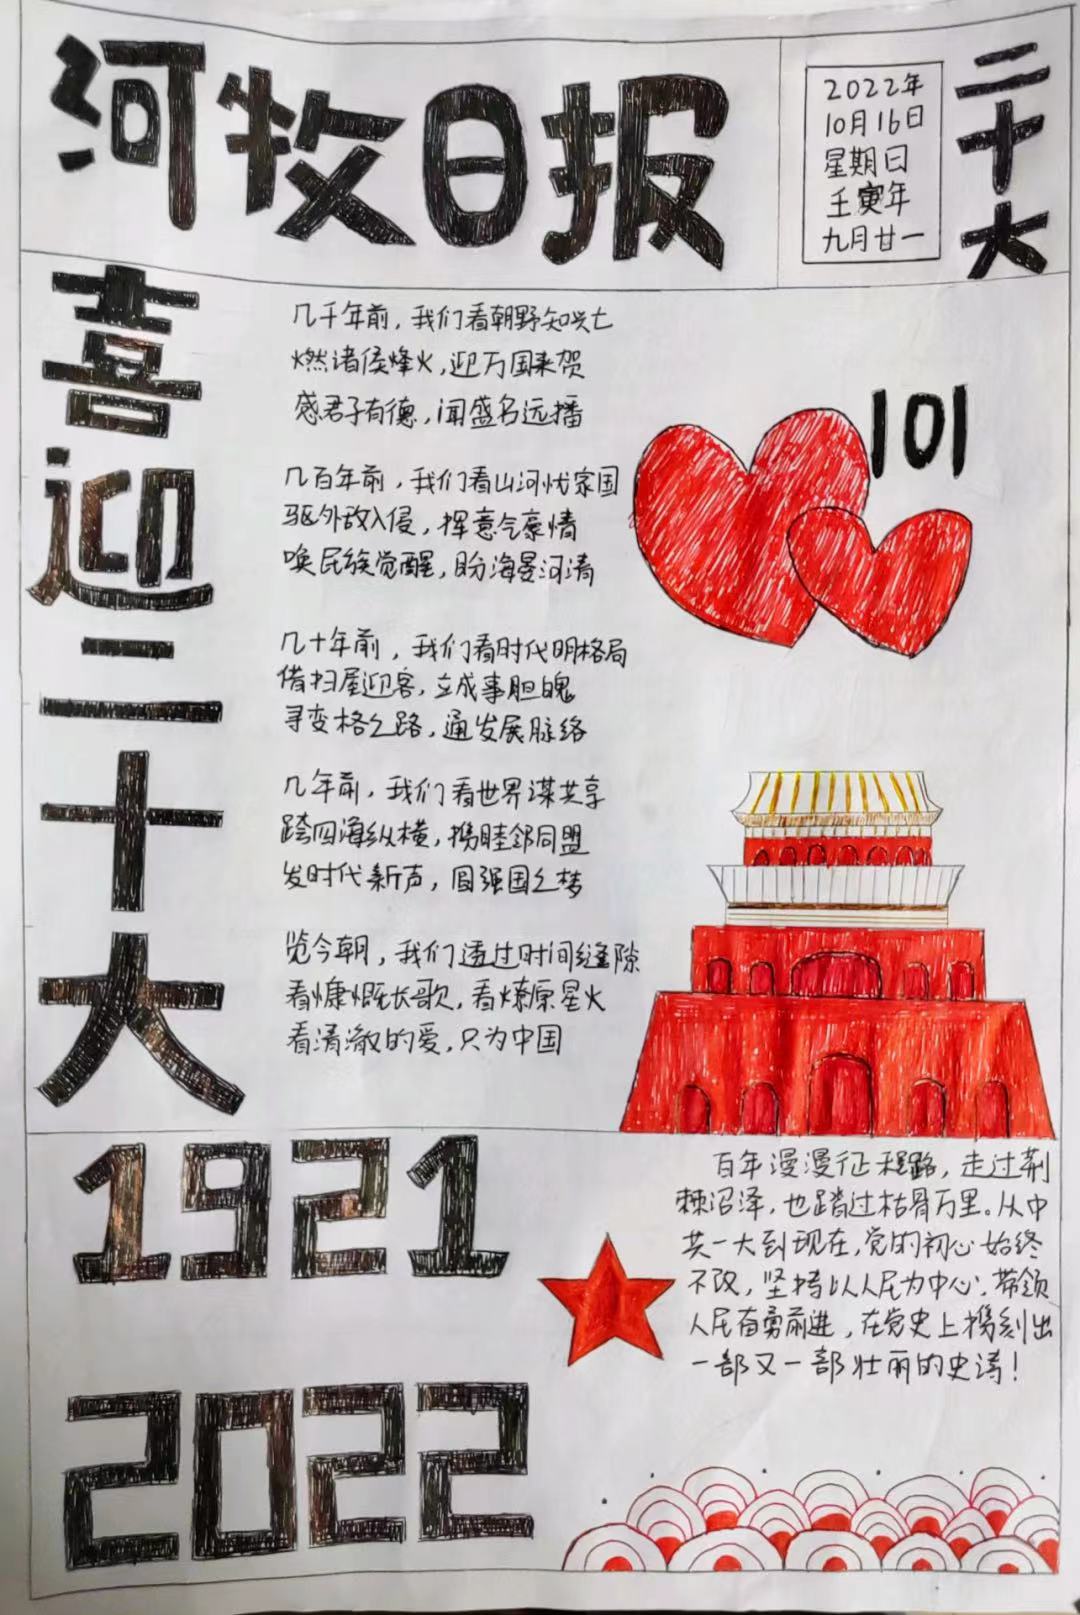 河牧日报
2022年
10月16日
星期日
壬寅年
九月廿一
二十大
喜迎二十大
几千年前，我们看朝野知兴亡
燃诸侯烽火，迎万国来贺
感君子有德，闻盛名远播
几百年前，我们看山河忧家国
驱外敌入侵，挥意气豪情
唤民族觉醒，盼海晏河清
几十年前，我们看时代明格局
借扫屋迎客，立成事胆魄
寻变格之路，通发展脉络
几年前，我们看世界谋共享
跨四海纵横，携睦邻同盟
发时代新声，圆强国之梦
览今朝，我们透过时间缝隙
看慷慨长歌，看燎原星火
看清澈的爱，只为中国
101
1921
2022
百年漫漫征程路，走过荆
棘沼泽，也踏过枯骨万里。从中
共一大到现在，党的初心始终
不改，坚持以人民为中心，带领
人民奋勇前进，在党史上携刻出
一部又一部壮丽的史诗！